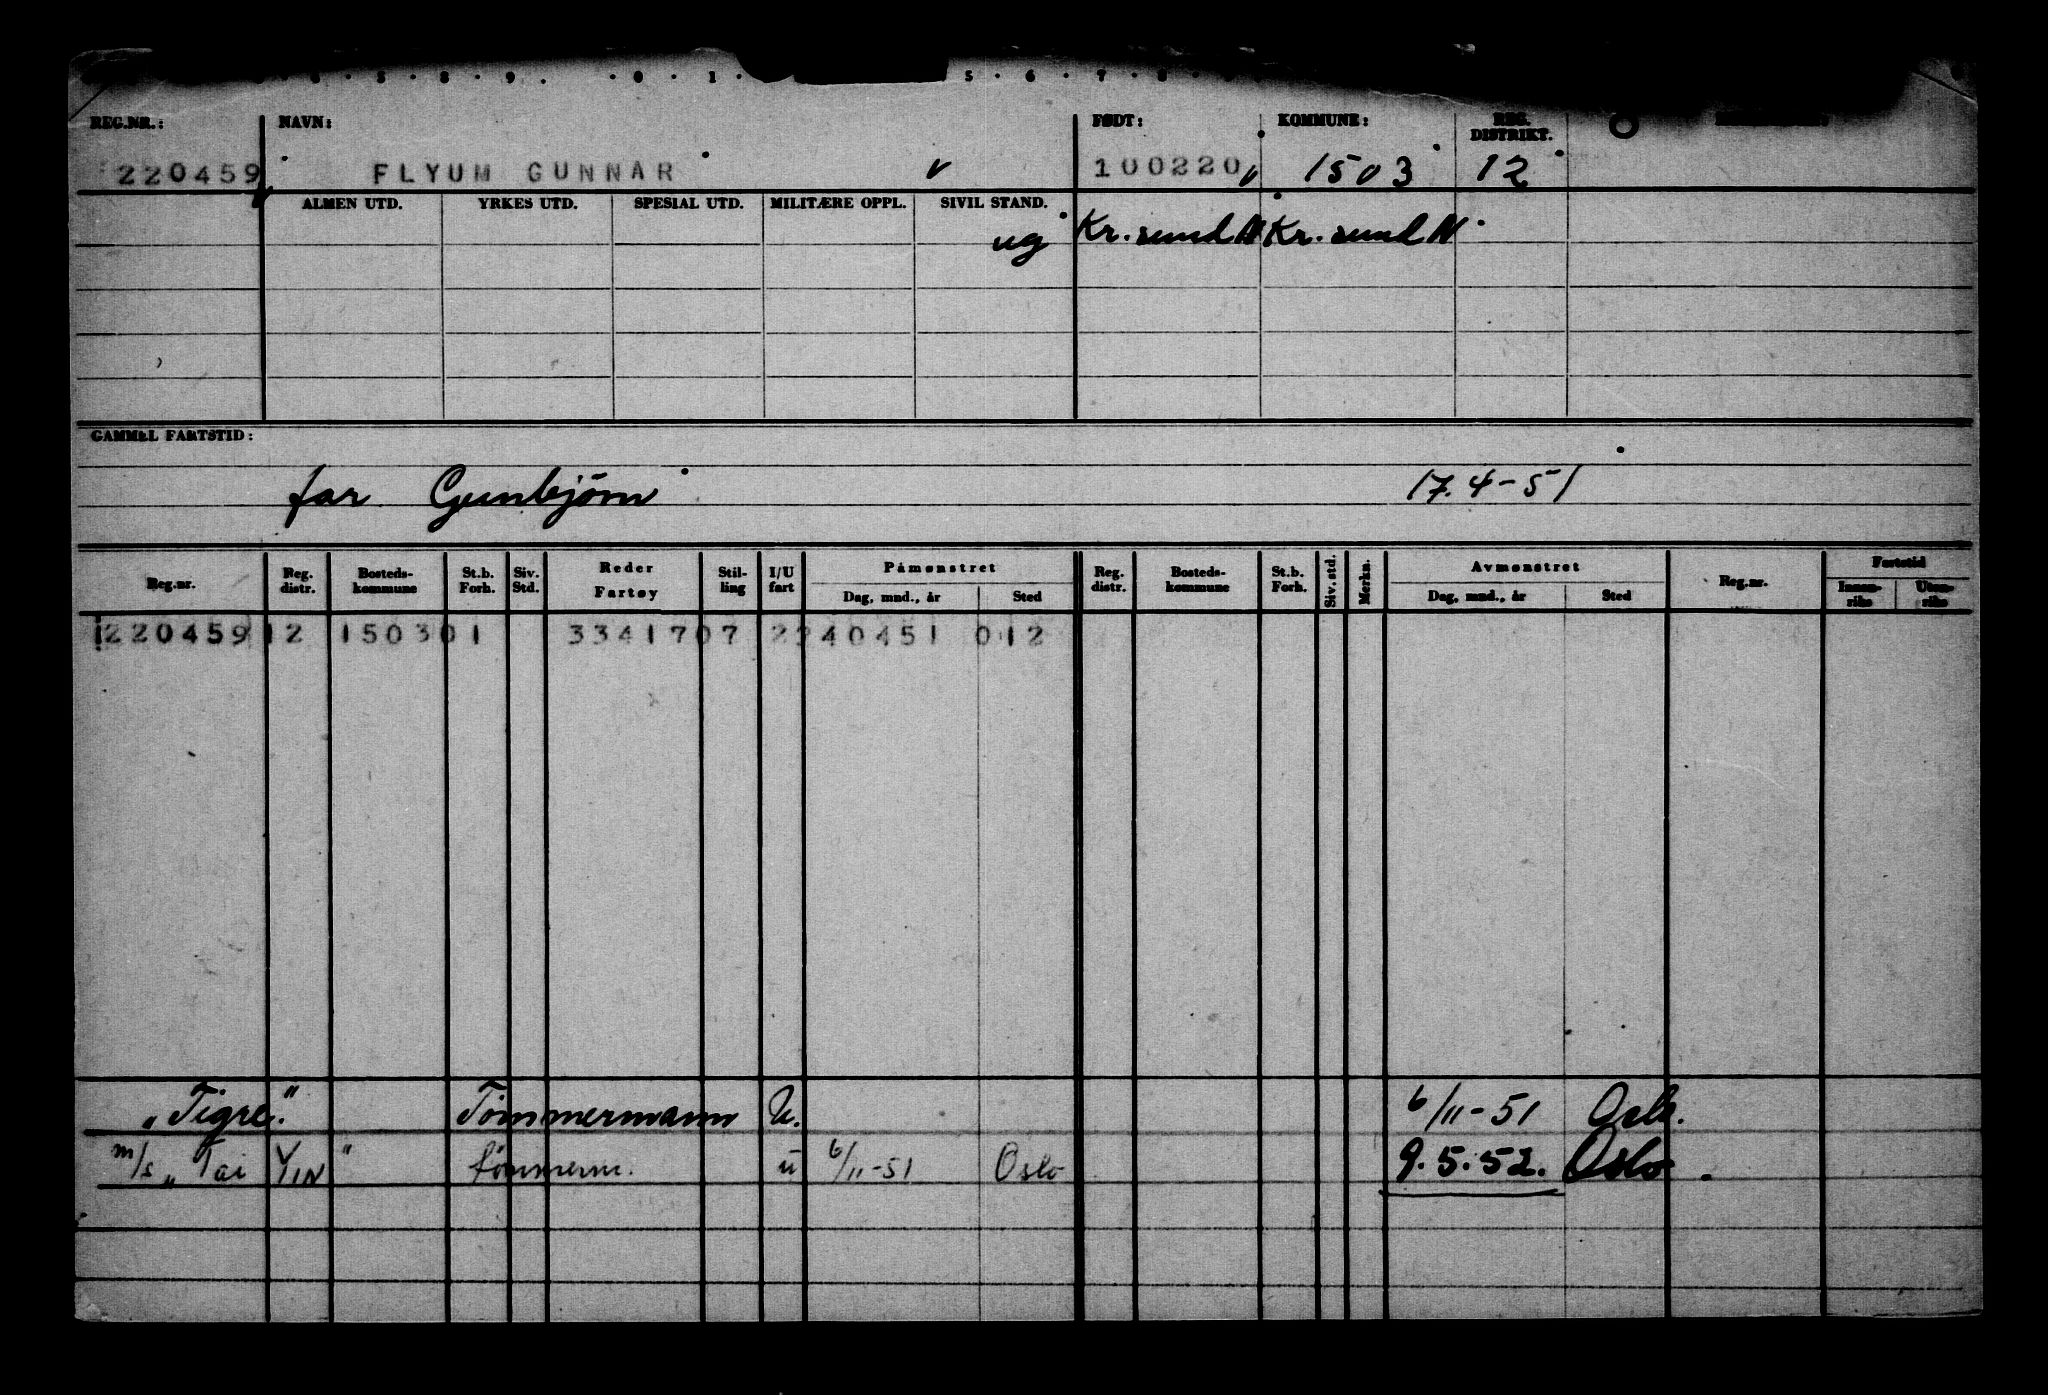 5 8 9 0 1 5 6 7 8
REG.NR.: NAVN: FØDT: KOMMUNE: REG. DISTRIKT.
220459 FLYUM GUNNAR 100220 1503 12
ALMEN UTD. YRKES UTD. SPESIAL UTD. MILITÆRE OPPL. SIVIL STAND.
ug Kr.sund N Kr.sund N
GAMMEL FARTSTID:
far Gunbjørn 17.4-51
Reg.nr. Reg. distr. Bosteds-kommune St.b. Forh. Siv. Std. Reder Fartøy Stil-ling I/U fart Påmønstret Dag, mnd., år Sted Reg. distr. Bosteds-kommune St.b. Forh. Siv. std. Merkn. Avmønstret Dag, mnd., år Sted Reg.nr. Fartstid Innen-riks Uten-riks
220459 12 1503 01 33417 07 2 240451 012
„Tigre" Tømmermann U. 6/11-51 Oslo.
m/s „Tai Yin" tømmerm. u 6/11-51 Oslo 9.5.52. Oslo.